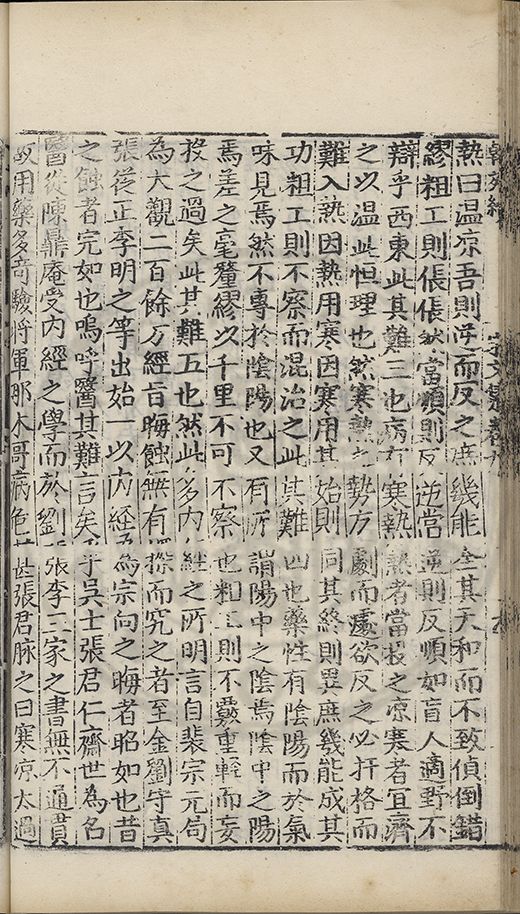 熱曰温凉吾則逆而反之庶幾能全其天和而不致傎倒錯
繆粗工則倀倀然當順則反逆當逆則反順如盲人適野不
辯乎西東此其難三也病有寒熱熱者當投之凉寒者宜濟
之以温此恒理也然寒熱之勢方劇而遽欲反之必扞格而
難入熱因熱用寒因寒用其始則同其終則異庶幾能成其
功粗工則不察而混治之此其難四也藥性有陰陽而於氣
味見焉然不專於陰陽也又有所謂陽中之陰焉陰中之陽
焉差之毫釐繆以千里不可不察也粗工則不覈重輕而妄
投之過矣此其難五也然此多内經之所明言自裴宗元局
為大觀二百餘方經旨晦蝕無有探而究之者至金劉守真
張從正李明之等出始一以内經為宗向之晦者昭如也昔
之蝕者完如也嗚呼醫其難言矣乎吳士張君仁齋世為名
醫從陳鼎庵受内經之學而於劉張李三家之書無不通貫
故用藥多竒驗將軍那木哥病危甚張君脉之曰寒凉太過